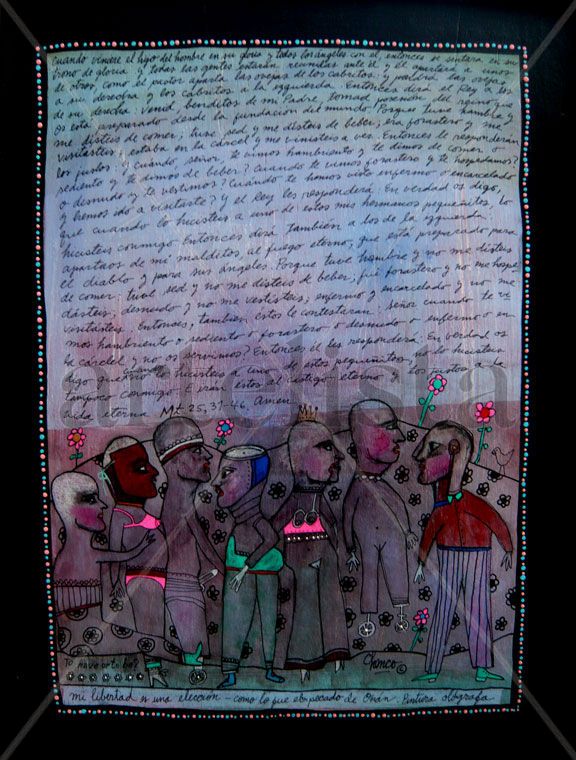 Cuando viniere el hijo del hombre en su gloria y todos los angeles con el, entonces se sentara en su
trono de gloria y todas las gentes estarán reunidas ante él y él apartará a unos
de otros, como el pastor aparta las ovejas de los cabritos. y pondrá las ovejas
a su derecha y los cabritos a la izquierda. Entonces dirá el Rey a los
de su derecha: Venid, benditos de mi Padre, tomad posesión del reino que
os está preparado desde la fundación del mundo. Porque tuve hambre y
me disteis de comer; tuve sed y me disteis de beber; era forastero y me
visitasteis; estaba en la cárcel y me vinisteis a ver. Entonces le responderán
los justos: y cuándo, señor, te vimos hambriento y te dimos de comer o
sediento y te dimos de beber? Cuándo te vimos forastero y te hospedamos?
o desnudo y te vestimos? Cuándo te hemos visto enfermo o encarcelado
y hemos ido a visitarte? y el Rey les responderá: En verdad os digo,
que cuando lo hicisteis a uno de estos mis hermanos pequeñitos, lo
hicisteis conmigo. Entonces dirá también a los de la izquierda
apartaos de mi malditos al fuego eterno, que está preparado para
el diablo y para sus ángeles. Porque tuve hambre y no me disteis
de comer, tuve sed y no me disteis de beber, fui forastero y no me hospe-
dasteis, desnudo y no me vestisteis, enfermo y encarcelado y no me
visitasteis. Entonces, también estos le contestaran: señor cuando te vi-
mos hambriento o sediento o forastero o desnudo o enfermo o en
la cárcel y no os servimos? Entonces él les responderá: En verdad os
digo cuando no lo hicisteis a uno de estos pequeñitos, no lo hicisteis
tampoco conmigo. E irán estos al castigo eterno y los justos a la
vida eterna. Mt. 25, 31-46. Amen
artelista
Chinco ©
mi libertad es una elección - como lo que el pecado de Onán. Pintura ológrafa